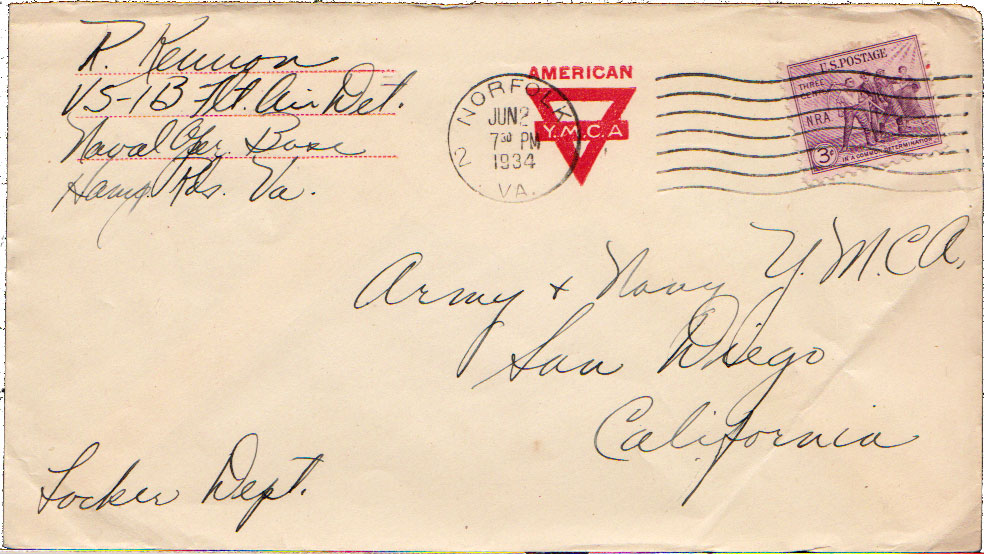 R. Kennon
VS-1B Flt. Air Det.
Naval Opr. Base
Hamp. Rds. Va.
NORFOLK
JUN 2
7 30 PM
1934
VA.
2
AMERICAN
Y.M.C.A
U.S. POSTAGE
THREE CENTS
NRA
3¢
IN A COMMON DETERMINATION
Army + Navy Y.M.C.A.
San Diego
California
Locker Dept.